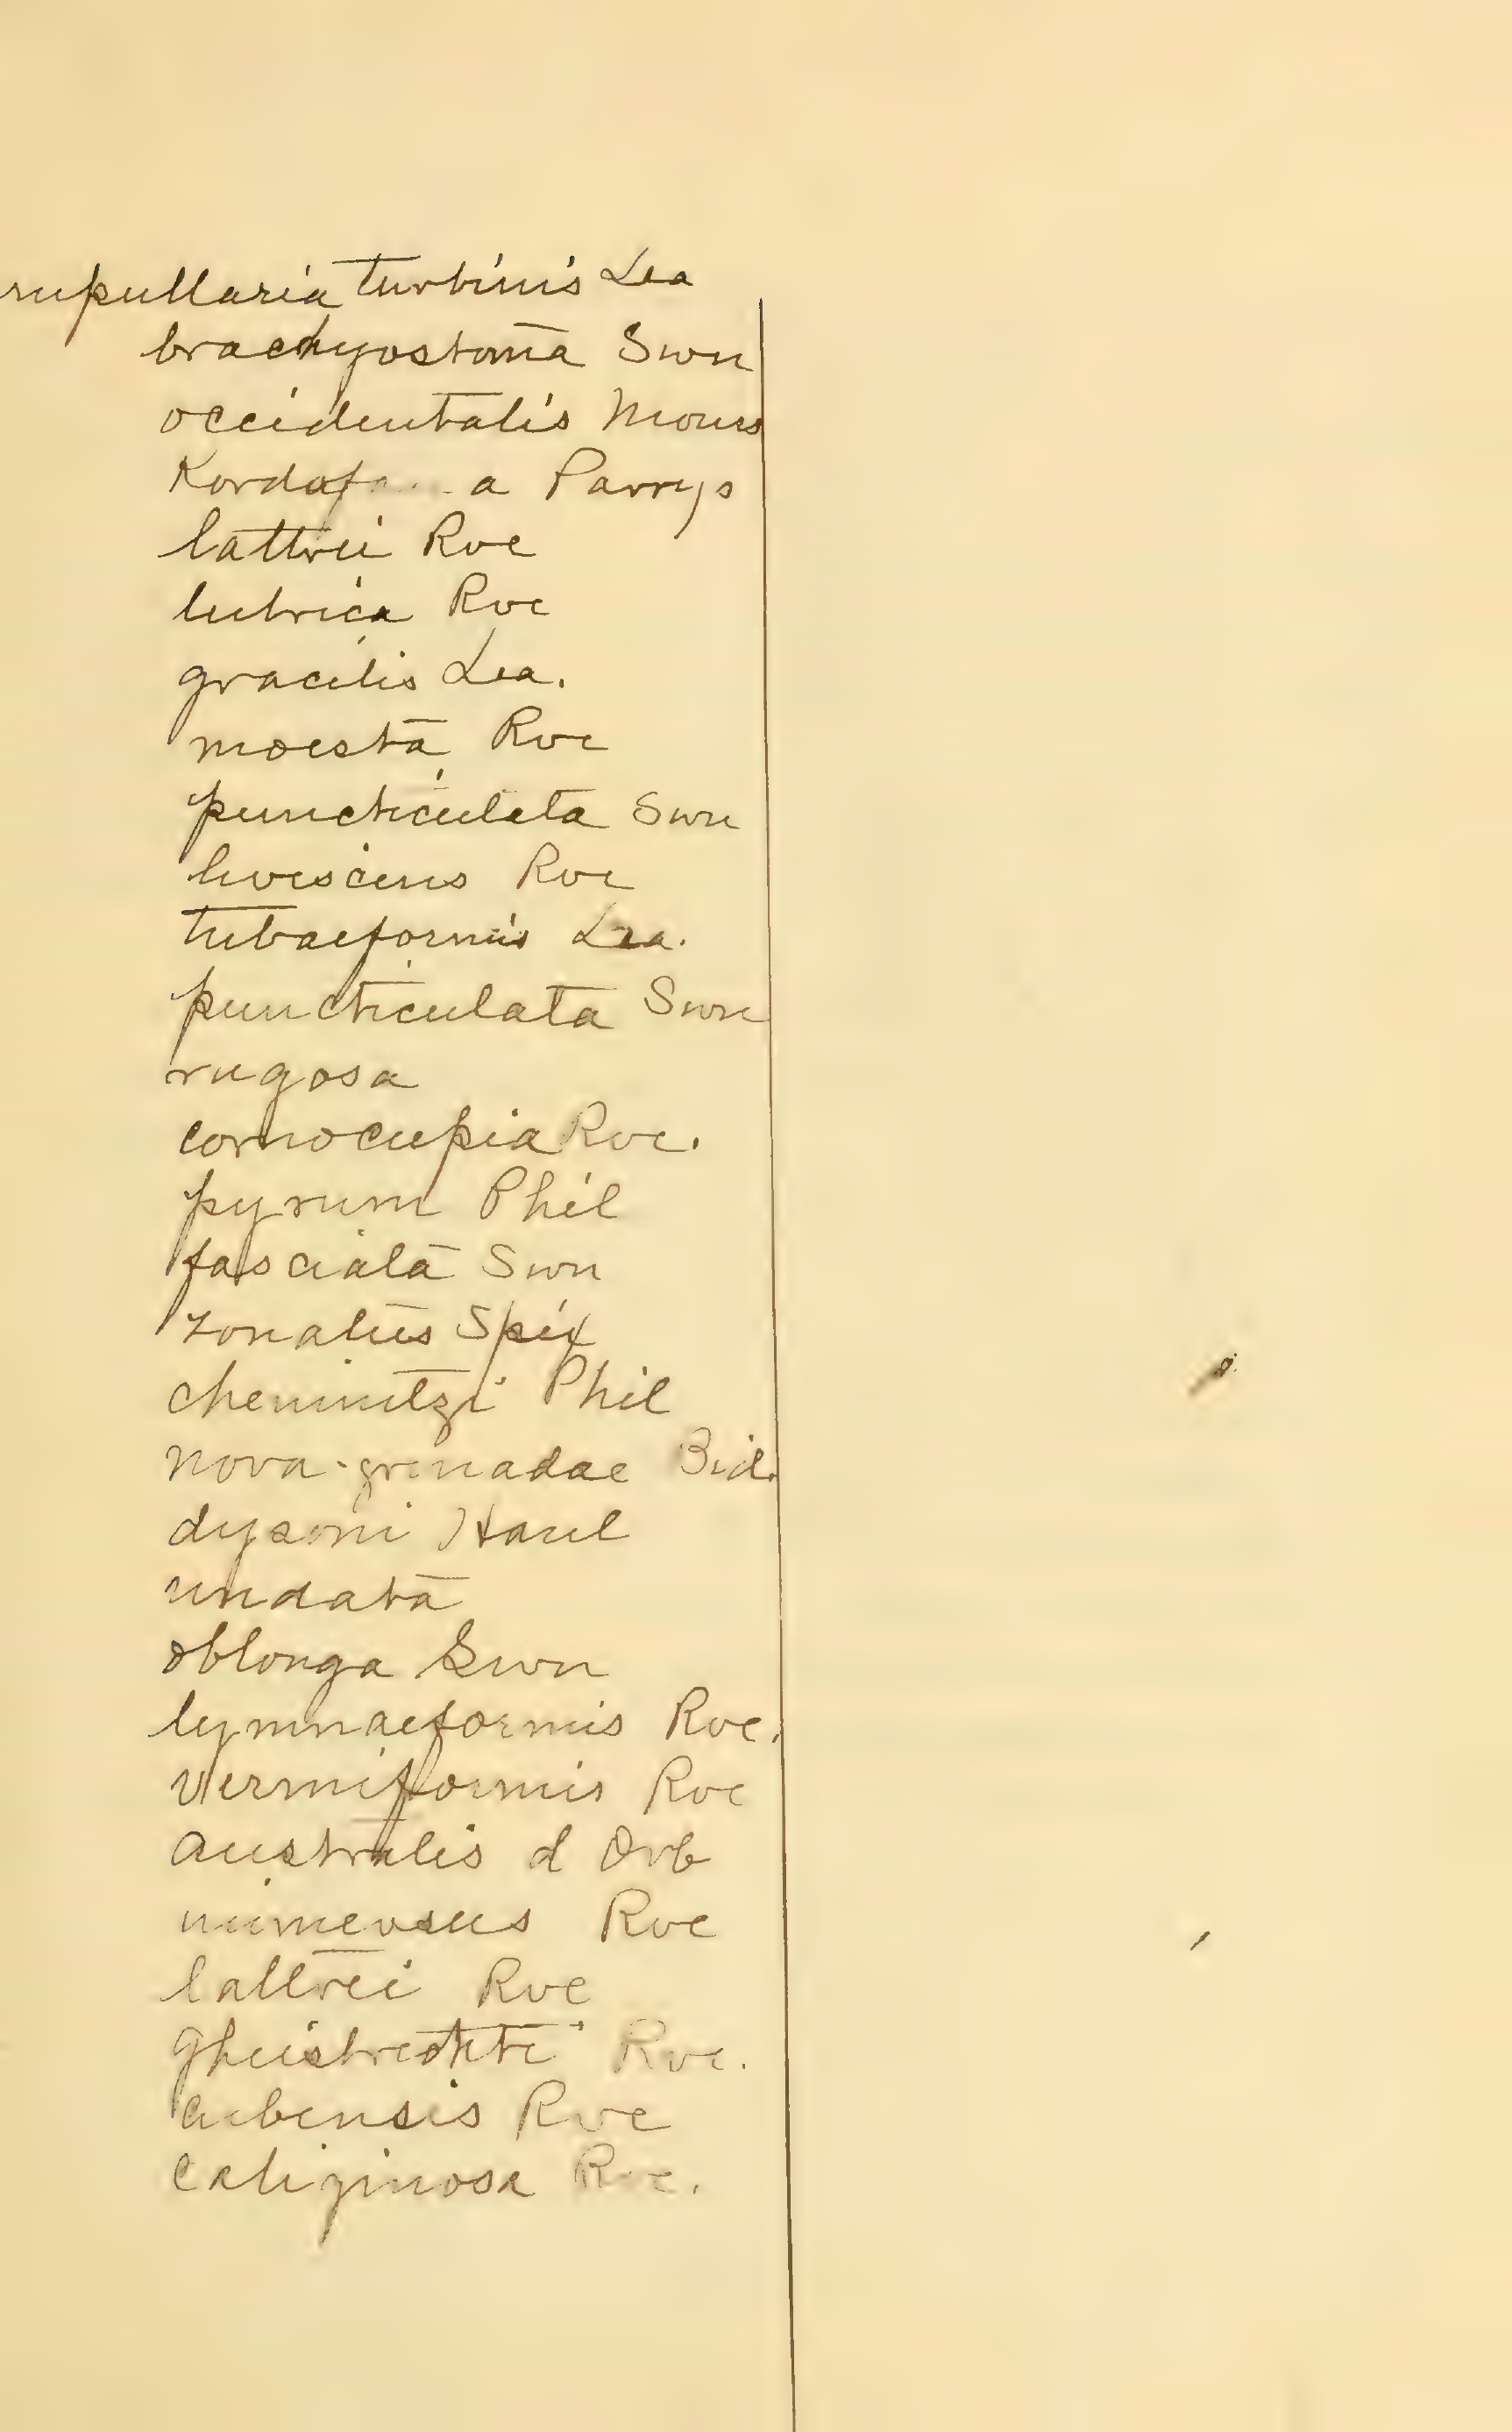 mpullaria turbinis Lea
brachyostoma Swn
occidentalis Mouss
a Parrys
lattrei Rve
lubrica Rve
gracilis Lea.
moesta Rve
puncticulata Swn
livescens Rve
tubaeformis Lea.
puncticulata Swn
rugosa
cornocupia Rve.
pyrum Phil
fasciata Swn
zonatus Spix
chemnitzi Phil
nova-grenadae
dysoni Hanl
undata
oblonga Swn
lymnaeformis Rve.
vermiformis Rve
australis d Orb
Rve
lattrei Rve
Rve.
cubensis Rve
caliginosa Rve.